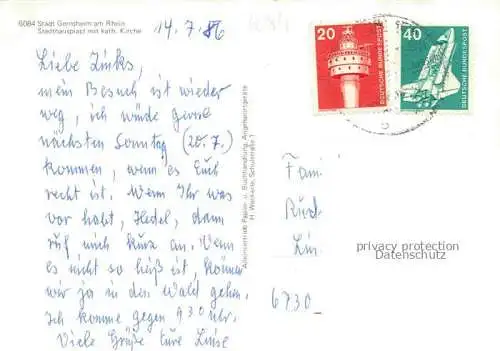 6084 Stadt Gernsheim am Rhein
Stadthausplatz mit kath. Kirche
14.7.86
Liebe Zinks,
mein Besuch ist wieder
weg, ich würde gerne
nächsten Sonntag (20.7.)
kommen, wenn es Euch
recht ist. Wenn Ihr was
vor habt, Hedel, dann
ruf mich kurz an. Wenn
es nicht so heiß ist, können
wir ja in den Wald gehen.
Ich komme gegen 930 Uhr.
Viele Grüße Eure Luise
Alleinvertrieb Papier- u. Buchhandlung,
H. Weckerle, Schulstraße
20
DEUTSCHE BUNDESPOST
40
DEUTSCHE BUNDESPOST
Fami
Rud
Zin
6730
privacy protection
Datenschutz